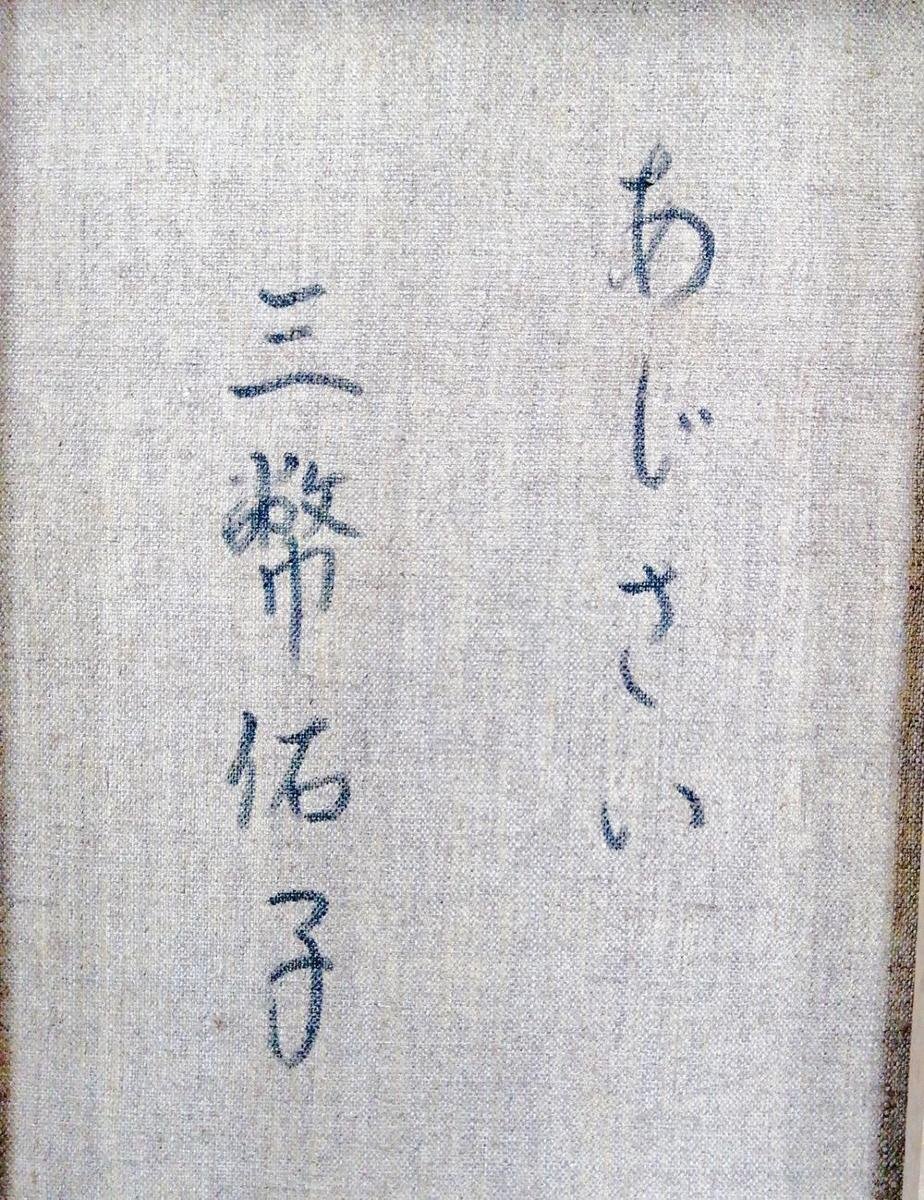 あじさい
三幣佑子